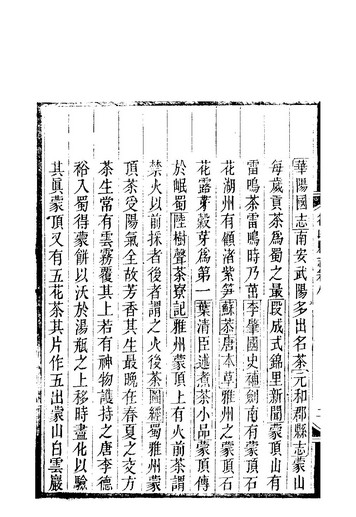 華陽國志南安武陽多出名茶元和郡縣志蒙山
每歲貢茶爲蜀之最段成式錦里新聞蒙頂山有
雷鳴茶雷鳴時乃茁李肇國史補劍南有蒙頂石
花湖州有顧渚紫笋蘇茶唐本草雅州之蒙頂石
花露芽穀芽爲第一葉清臣述煮茶小品蒙頂傳
於岷蜀陸樹聲茶寮記雅州蒙頂上有火前茶謂
禁火以前採者後者謂之火後茶圖經蜀雅州蒙
頂茶受陽氣全故芳香其生最晩在春夏之交方
茶生常有雲霧覆其上若有神物護持之唐李德
裕入蜀得蒙餅以沃於湯瓶之上移時盡化以驗
其眞蒙頂又有五花茶其片作五出蒙山白雲巖